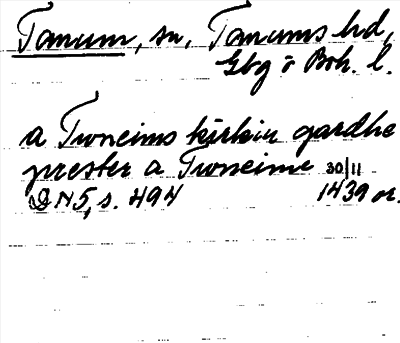 Tanum, sn, Tanums hd,
Gbg o Boh. l.
a Twneims kirkiu gardhe
prester a Twneime 30/11
DN 5, s. 494 1439 or.